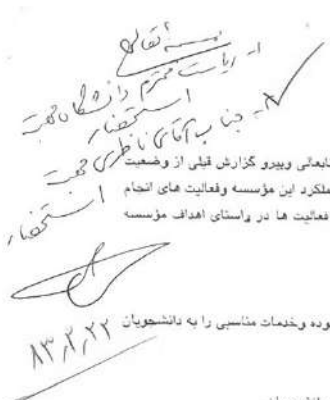 بسمه تعالی
۱- ریاست محترم دانشگاه جهت
استحضار
۲- جناب آقای ناظری جهت
استحضار
تابعالی وپیرو گزارش قبلی از وضعیت
ملکرد این مؤسسه وفعالیت های انجام
فعالیت ها در راستای اهداف مؤسسه
وده وخدمات مناسبی را به دانشجویان
۸۳٫۲٫۲۲